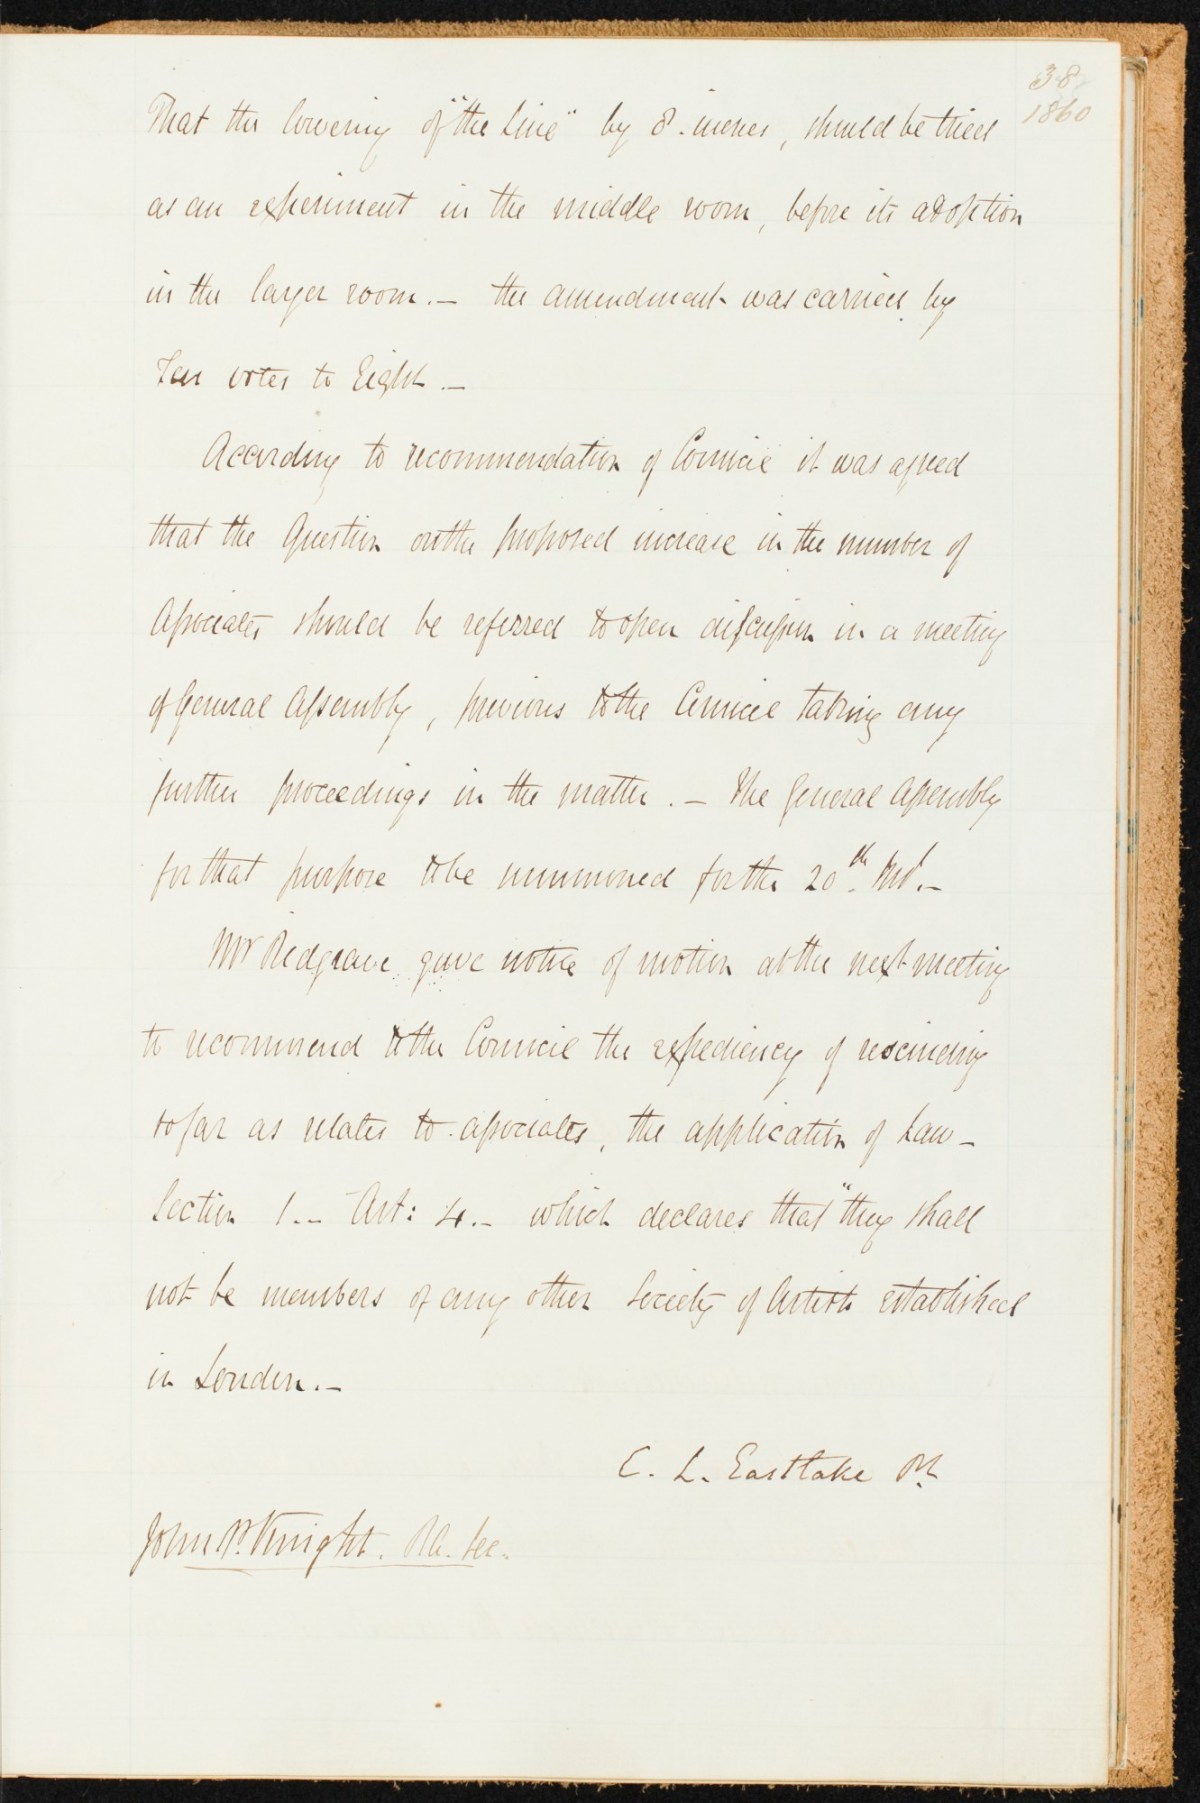 38
1860
That the lowering of "the Line" by 8. inches, should be tried
as an experiment in the middle room, before its adoption
in the larger room. — the amendment was carried by
Ten votes to Eight —
According to recommendation of Council it was agreed
that the Question on the proposed increase in the number of
Associates should be referred to open discussion in a meeting
of General Assembly, previous to the Council taking any
further proceedings in the matter. — The General Assembly
for that purpose to be summoned for the 20th. Inst. —
Mr Redgrave gave notice of motion at the next meeting
to recommend to the Council the expediency of rescinding
so far as relates to associates, the application of Law —
Section 1. — Art: 4. — which declares that "they shall
not be members of any other Society of Artists established
in London. —
C. L. Eastlake P.
John P. Knight. R.A. Sec.